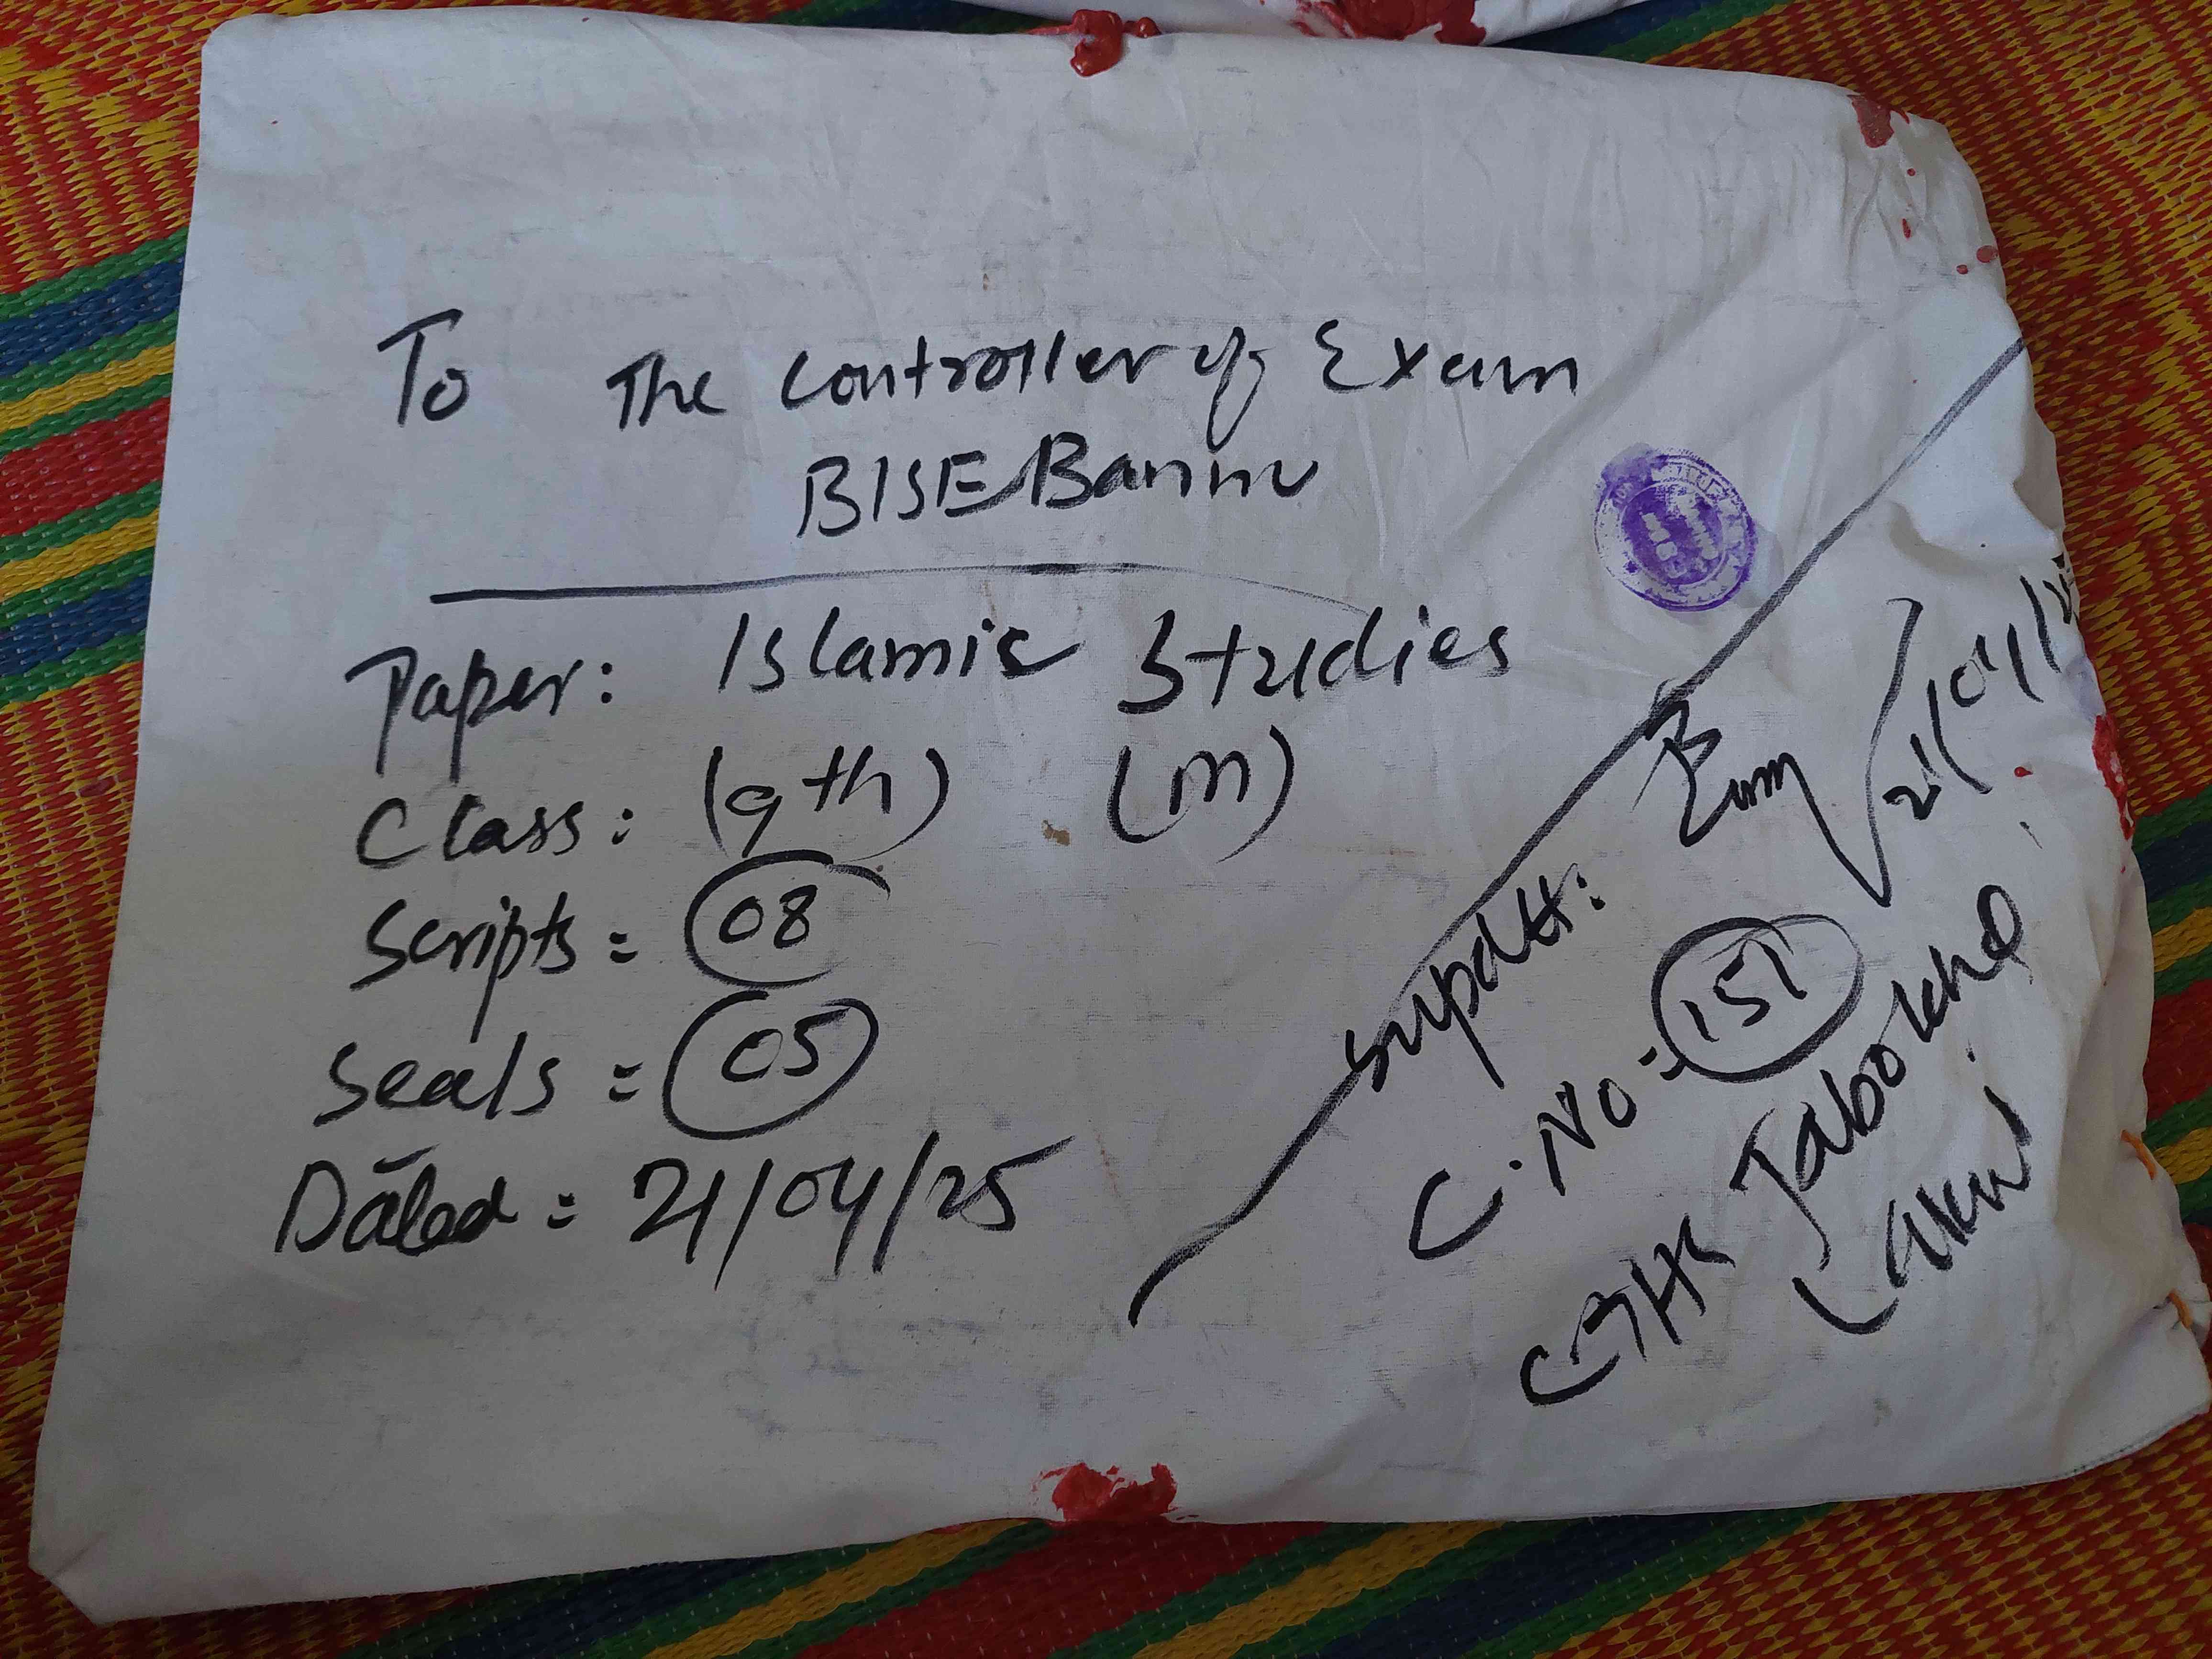 To The Controller of Exam
BISE Bannu
Paper: Islamic Studies
Class: (9th) (m)
Scripts = 08
Seals = 05
Dated = 21/04/25
Supdtt:
21/04/25
C.No = 151
GHS Jabo Khel
Lakki